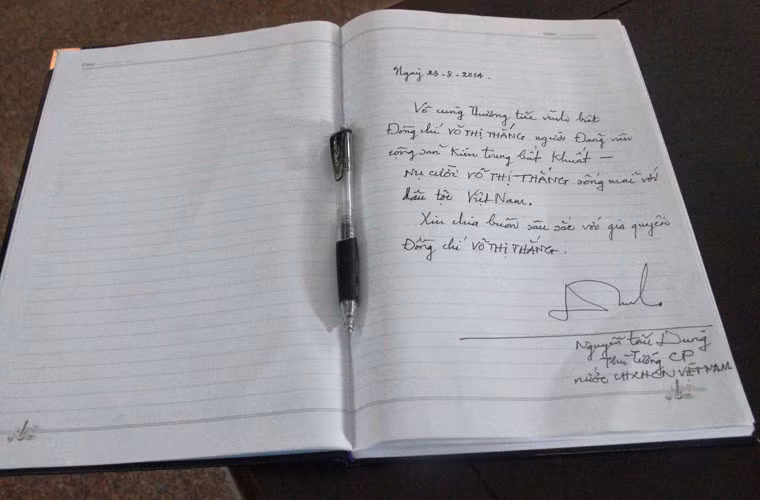 Ngày 23-8-2014.
Vô cùng thương tiếc vĩnh biệt
Đồng chí VÕ THỊ THẮNG người Đảng viên
cộng sản Kiên trung bất Khuất –
Nụ cười VÕ THỊ THẮNG sống mãi với
dân tộc Việt Nam.
Xin chia buồn sâu sắc với gia quyến
Đồng chí VÕ THỊ THẮNG.
Nguyễn Tấn Dũng
Thủ Tướng CP
nước CHXHCN VIỆT NAM